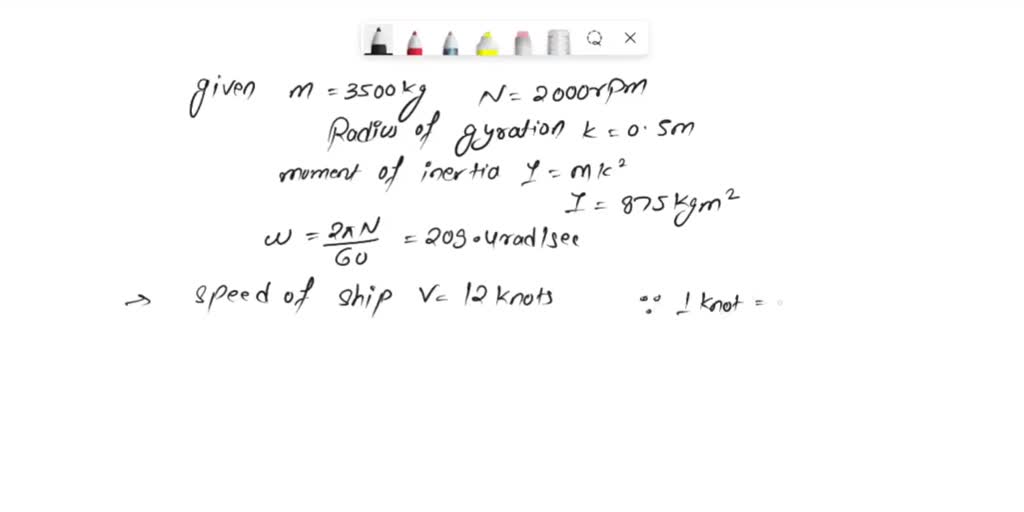 given m = 3500kg N = 2000rpm
Radius of gyration k = 0.5m
moment of inertia I = mk²
I = 875kgm²
ω = 2πN/60 = 209.4rad/sec
→ speed of ship V = 12 knots ∵ 1 knot =